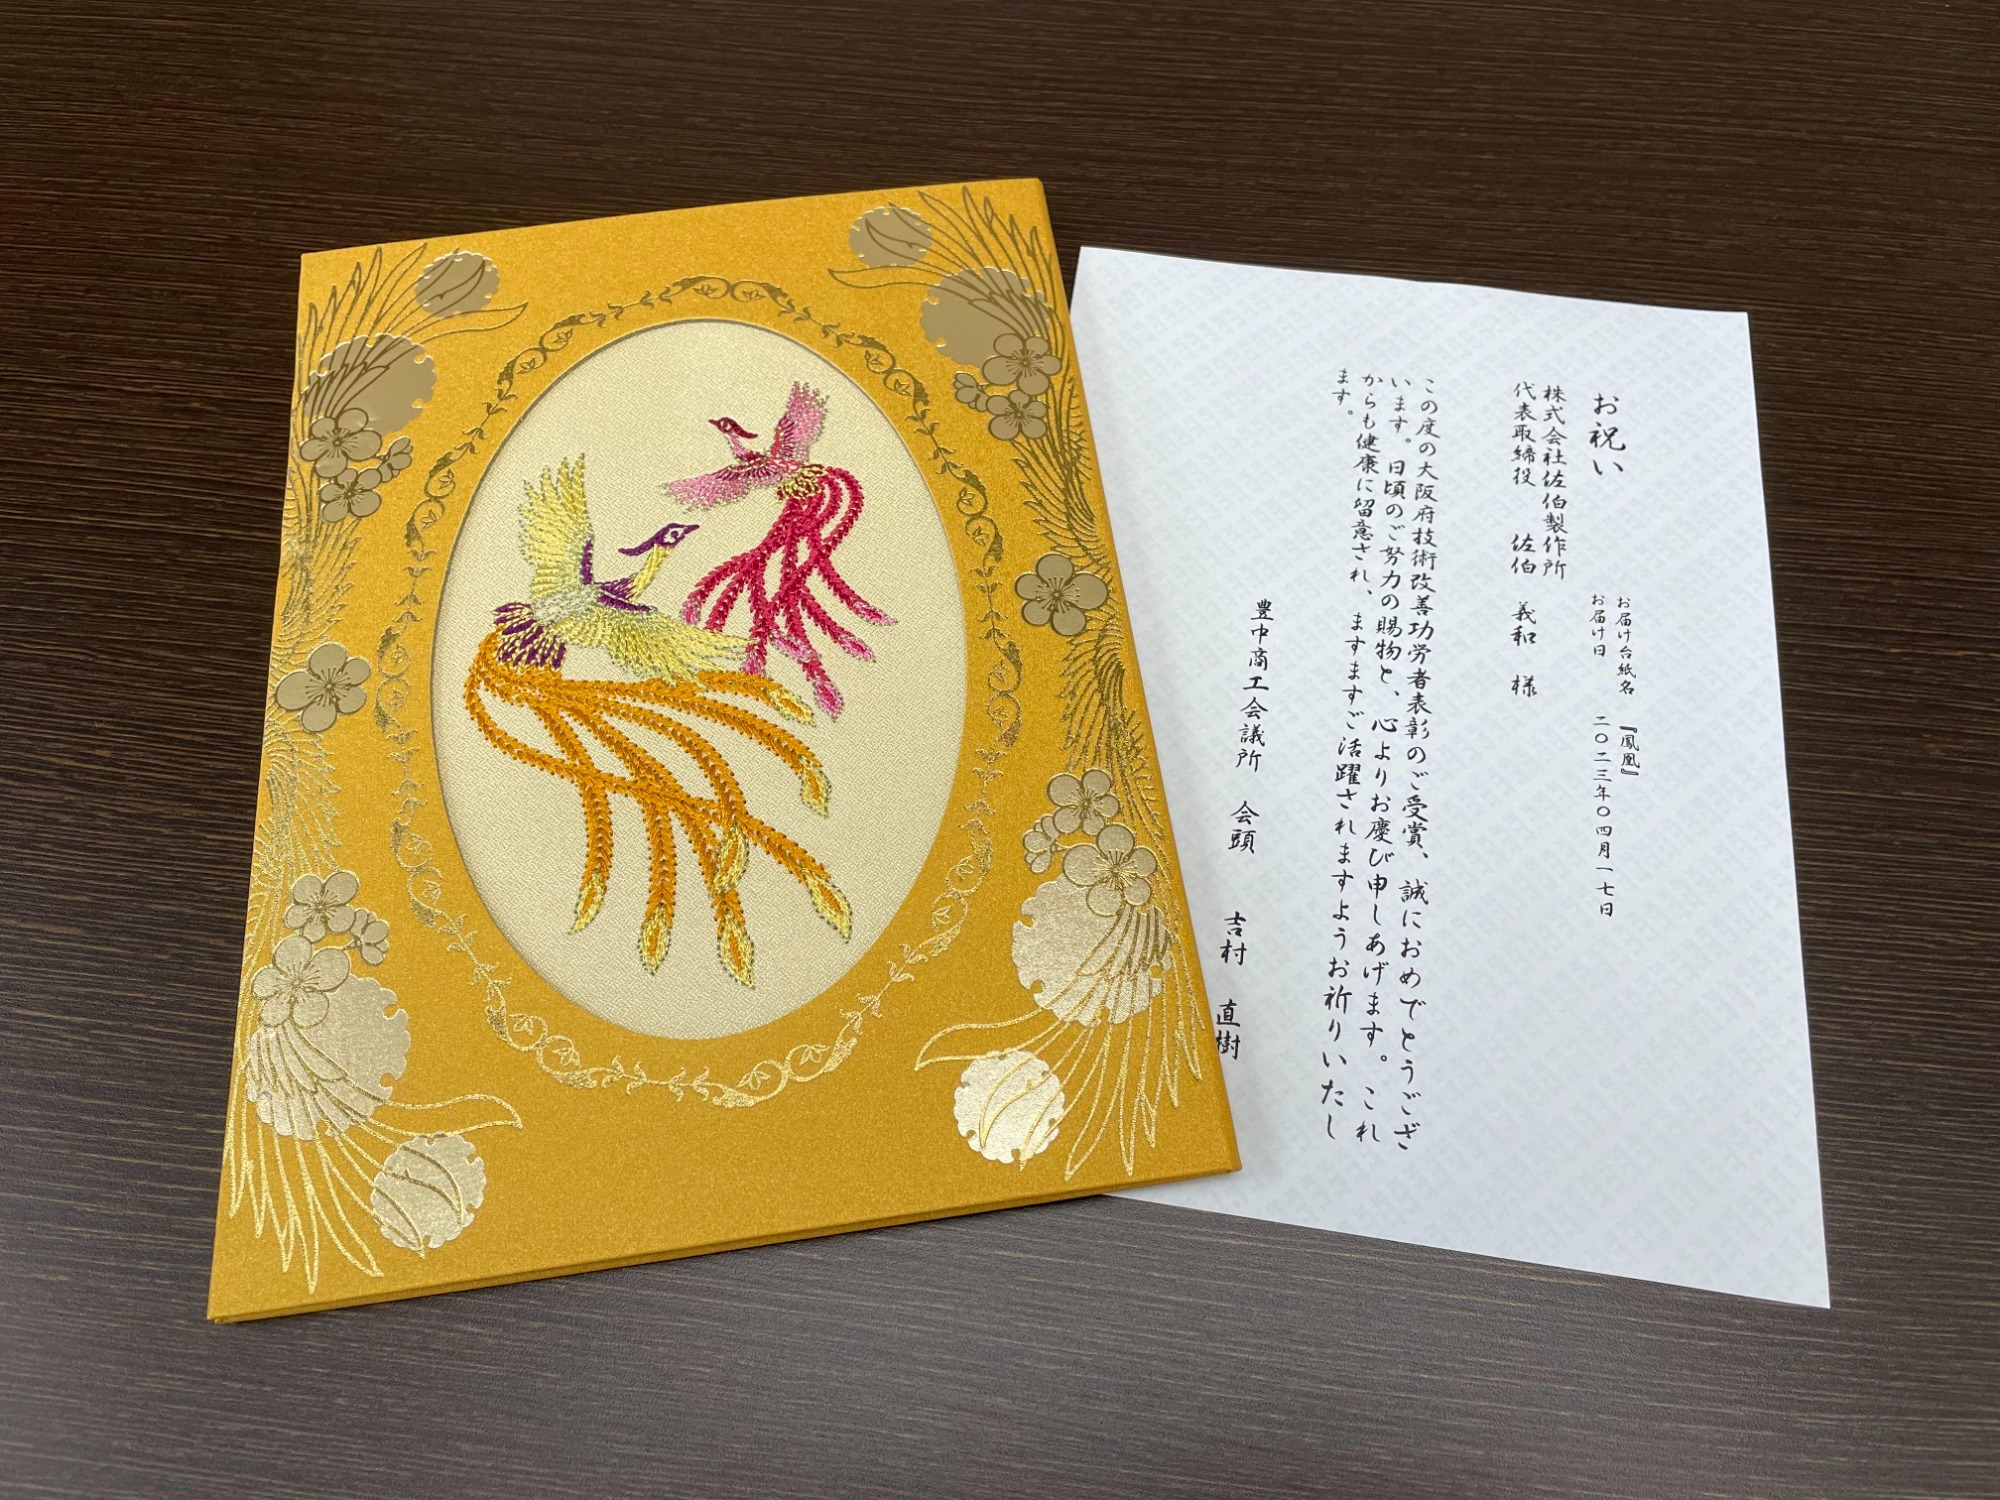 お届け台紙名　『鳳凰』
お届け日　二〇二三年〇四月一七日
お祝い
株式会社佐伯製作所
代表取締役　佐伯　義和　様
この度の大阪府技術改善功労者表彰のご受賞、誠におめでとうござ
います。日頃のご努力の賜物と、心よりお慶び申しあげます。これ
からも健康に留意され、ますますご活躍されますようお祈りいたし
ます。
豊中商工会議所　会頭　吉村　直樹